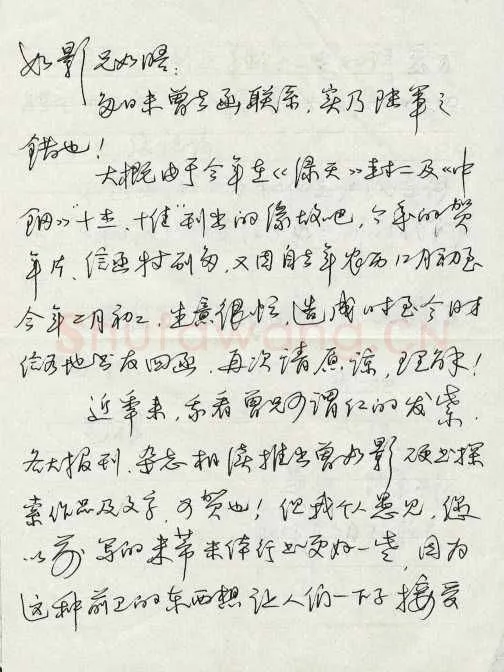 如影兄如晤：
多日未曾去函联系，实乃陆军之
错也！
大概由于今年在《绿天》封二及《中
钢》“十杰、十佳”刊出的缘故吧，今年的贺
年片、信函特别多，又因自去年农历12月初至
今年二月初二，生意很忙，造成时至今日才
给各地书友回函，再次请原谅，理解！
近年来，我看曾兄可谓红的发紫，
各大报刊、杂志相续推出曾如影硬书探
索作品及文字，可贺也！但我个人愚见，您
以前写的米芾米体行书更好一些，因为
这种前卫的东西想让人们一下子接受
Shufawang.CN